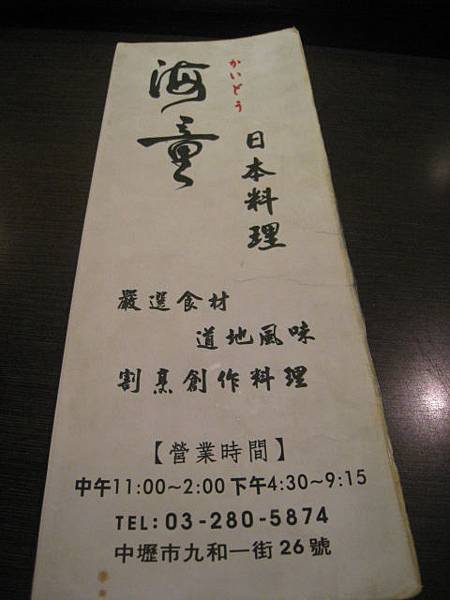 海童
かいどう
日本料理
嚴選食材
道地風味
割烹創作料理
【營業時間】
中午11:00~2:00下午4:30~9:15
TEL:03-280-5874
中壢市九和一街26號